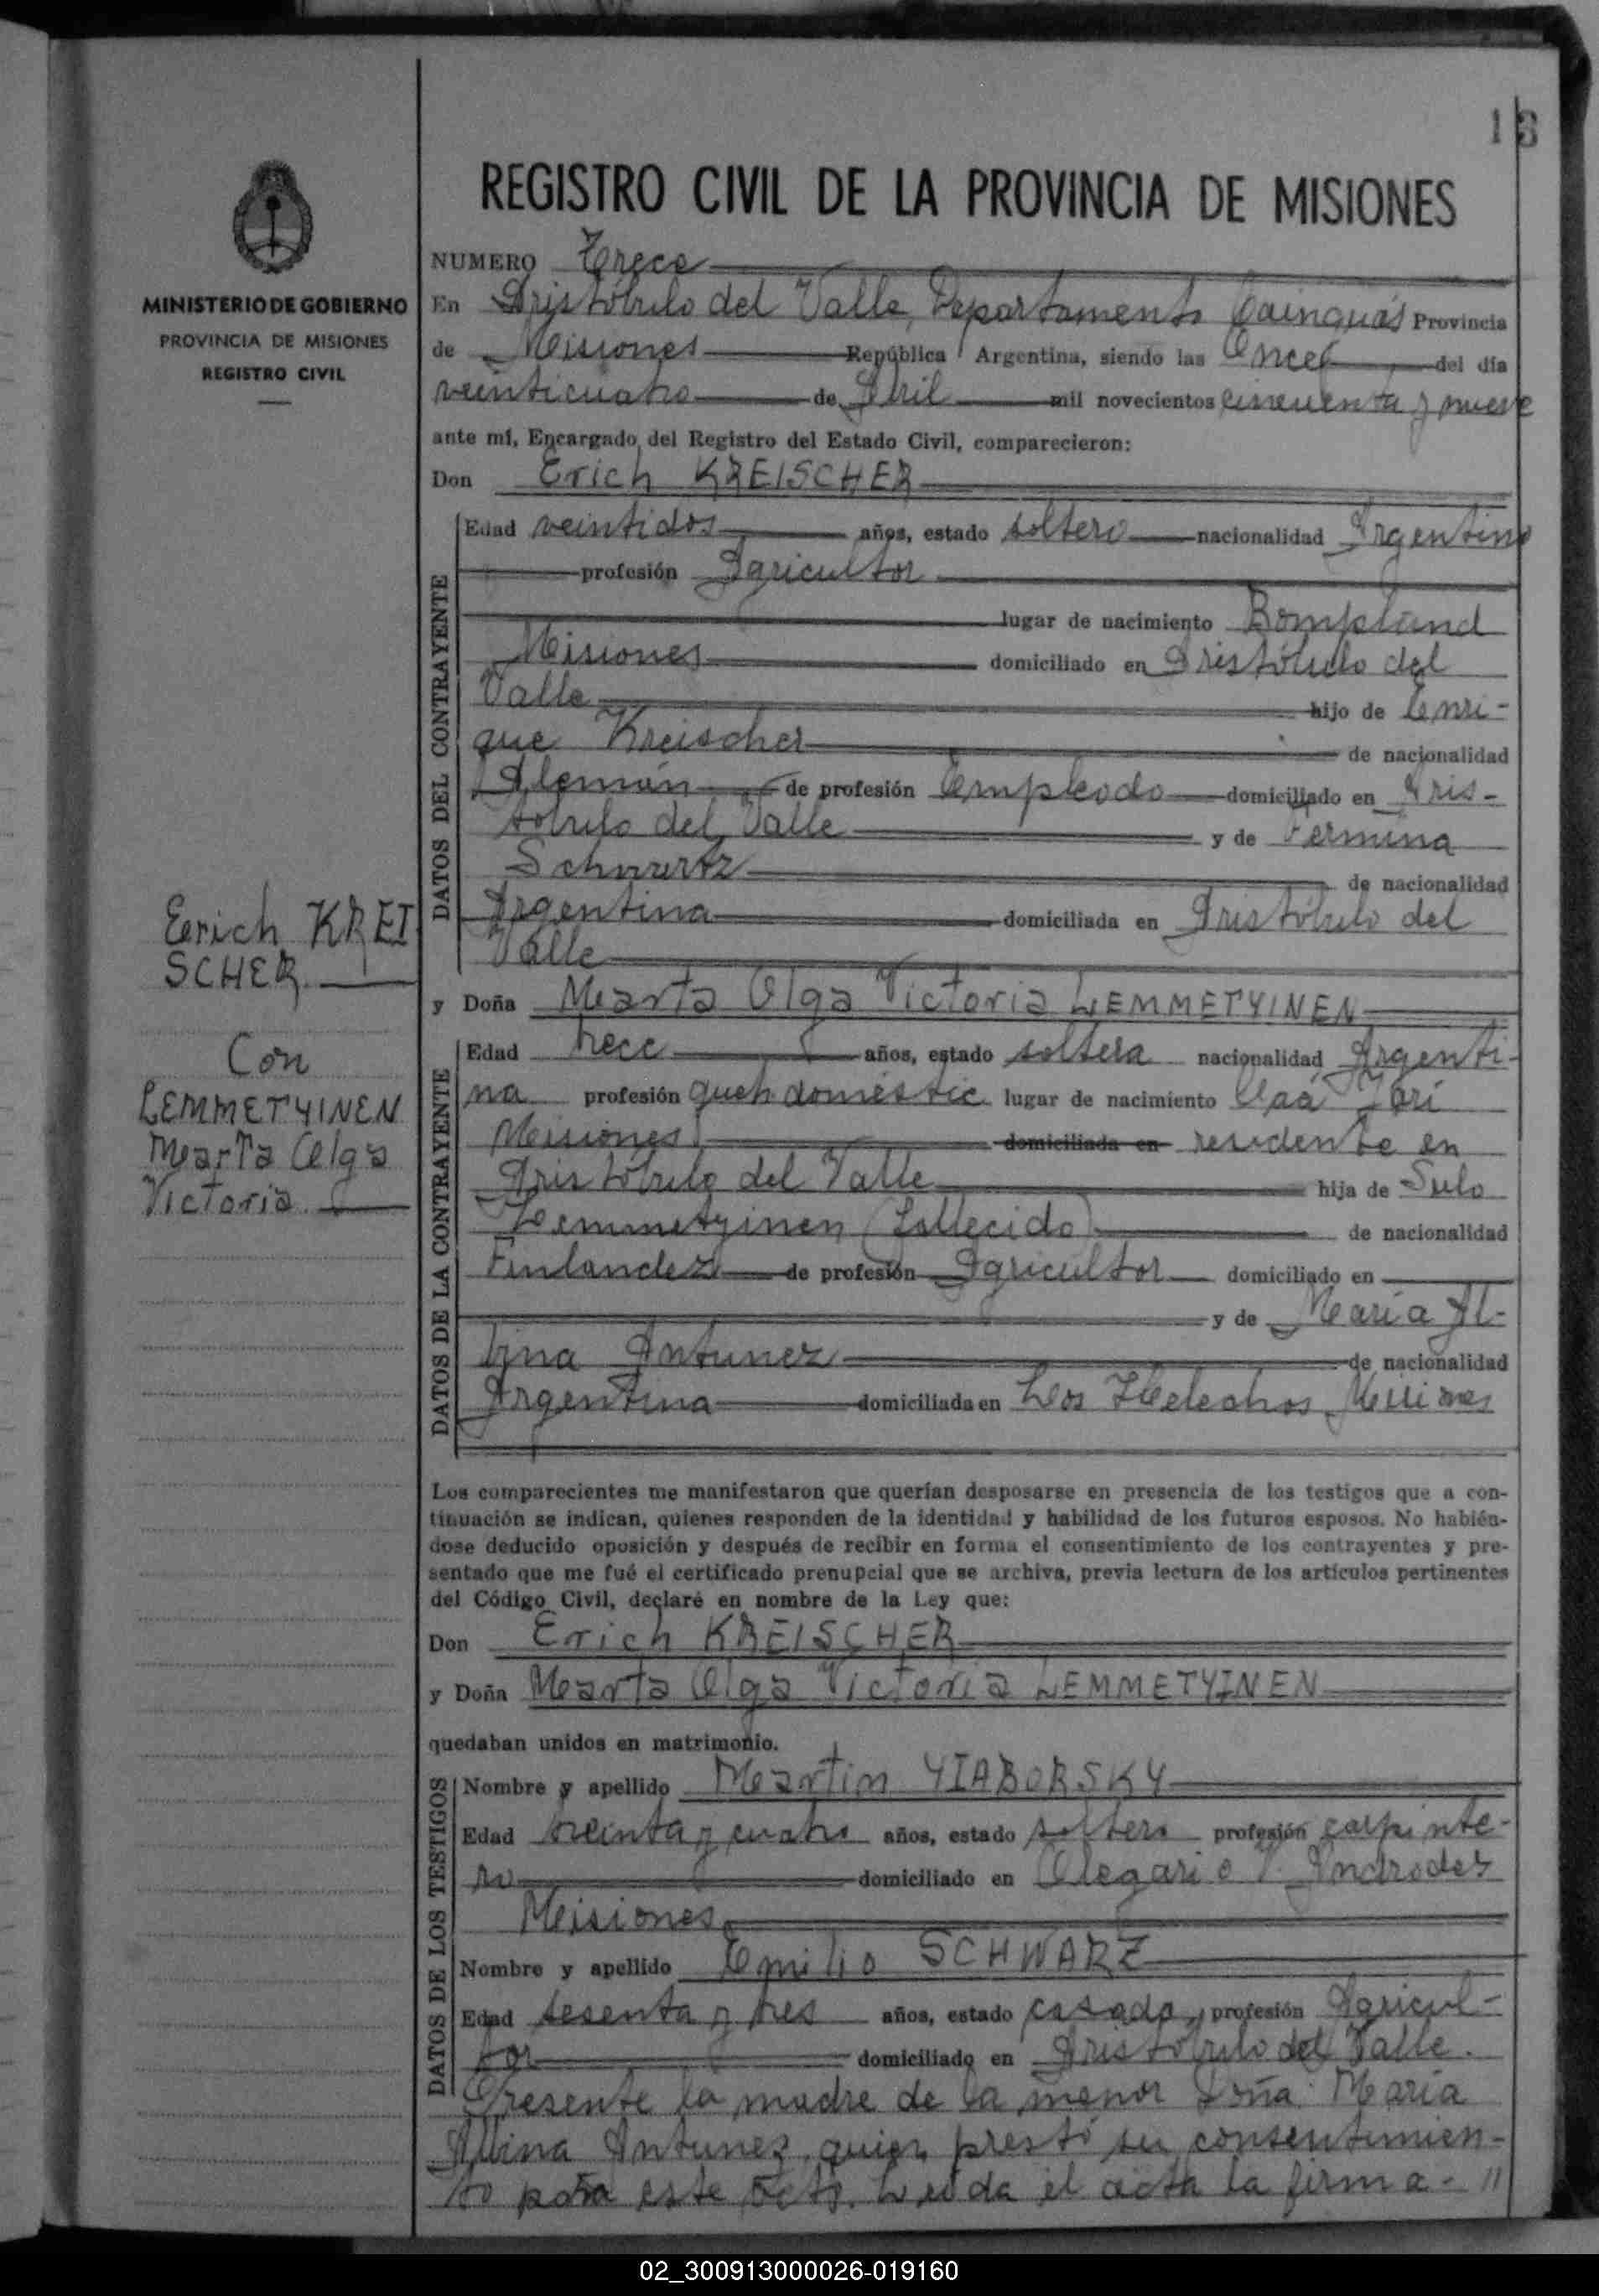 13
REGISTRO CIVIL DE LA PROVINCIA DE MISIONES
MINISTERIO DE GOBIERNO
PROVINCIA DE MISIONES
REGISTRO CIVIL
NUMERO Trece
En Aristóbulo del Valle, Departamento Cainguás Provincia
de Misiones República Argentina, siendo las Once del día
veinticuatro de Abril mil novecientos cincuenta y nueve
ante mí, Encargado del Registro del Estado Civil, comparecieron:
Don Erich KREISCHER
DATOS DEL CONTRAYENTE
Edad veintidos años, estado soltero nacionalidad Argentino
profesión Agricultor
lugar de nacimiento Bompland
Misiones domiciliado en Aristóbulo del
Valle hijo de Enri-
que Kreischer de nacionalidad
Alemán de profesión Empleado domiciliado en Aris-
tobulo del Valle y de
Schwartz de nacionalidad
Argentina domiciliada en Aristóbulo del
Valle
Erich KREI
SCHER
Con
LEMMETYINEN
Marta Olga
Victoria
y Doña Marta Olga Victoria LEMMETYINEN
DATOS DE LA CONTRAYENTE
Edad trece años, estado soltera nacionalidad Argenti-
na profesión lugar de nacimiento Caá Yarí
Misiones domiciliada en residente en
Aristóbulo del Valle hija de Sulo
Lemmetyinen (fallecido) de nacionalidad
Finlandez de profesión Agricultor domiciliado en
y de María Al-
bina Antunez de nacionalidad
Argentina domiciliada en Los Helechos Misiones
Los comparecientes me manifestaron que querían desposarse en presencia de los testigos que a con-
tinuación se indican, quienes responden de la identidad y habilidad de los futuros esposos. No habién-
dose deducido oposición y después de recibir en forma el consentimiento de los contrayentes y pre-
sentado que me fué el certificado prenupcial que se archiva, previa lectura de los artículos pertinentes
del Código Civil, declaré en nombre de la Ley que:
Don Erich KREISCHER
y Doña Marta Olga Victoria LEMMETYINEN
quedaban unidos en matrimonio.
DATOS DE LOS TESTIGOS
Nombre y apellido Martin YIABORSKY
Edad treinta y cuatro años, estado soltero profesión carpinte-
ro domiciliado en Olegario V. Andrades
Misiones
Nombre y apellido Emilio SCHWARZ
Edad sesenta y tres años, estado casado, profesión Agricul-
tor domiciliado en Aristóbulo del Valle.
Presente la madre de la menor Doña María
Albina Antunez, quien prestó su consentimien-
to para este acto. Leída el acta la firma- "
02_300913000026-019160